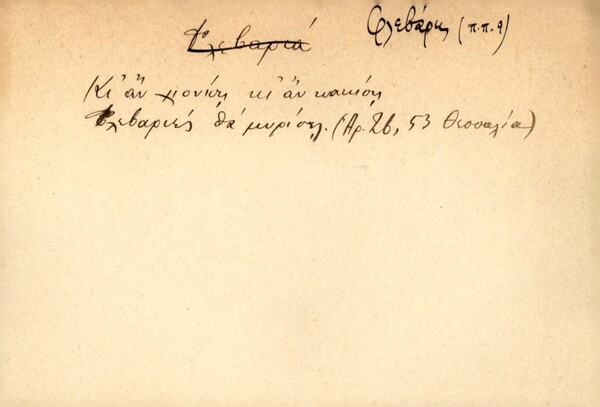 Φλεβαριά Φλεβάρης (π.π. 9)
Κι ἂν χιονίση κι ἂν κακιόση
Φλεβαριές θά μυρίση. (Ἀρ. 26, 53 Θεσσαλία)